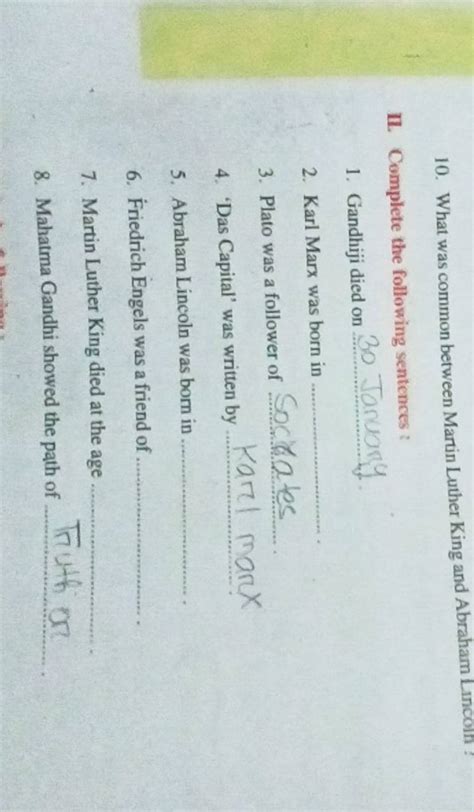 10. What was common between Martin Luther King and Abraham Lincoln ?
II. Complete the following sentences :
1. Gandhiji died on 30 January.
2. Karl Marx was born in ............ .
3. Plato was a follower of Socrates.
4. 'Das Capital' was written by Karl marx.
5. Abraham Lincoln was born in ............ .
6. Friedrich Engels was a friend of ............ .
7. Martin Luther King died at the age ............ .
8. Mahatma Gandhi showed the path of Truth on .